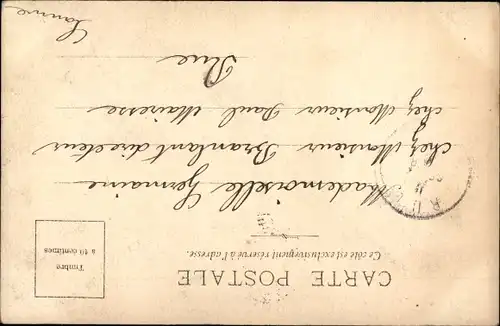 CARTE POSTALE
Ce côté est exclusivement réservé à l'adresse.
Timbre
à 10 centimes
Mademoiselle Germaine
chez Monsieur Branlant directeur
chez Monsieur Paul Mairesse
Rue